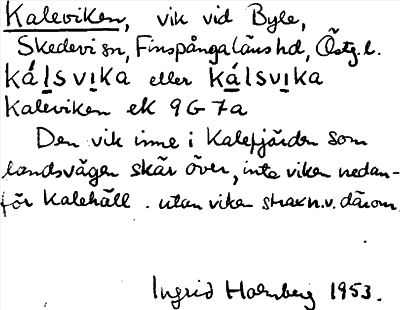 Kaleviken, vik vid Byle,
Skedevi sn, Finspångaläns hd, Östg. l.
kálsvika eller kálsvika
Kaleviken ek 9G 7a
Den vik inne i Kalefjärden som
landsvägen skär över, inte viken nedan-
för Kalehäll . utan viken strax n.v. därom.
Ingrid Holmberg 1953.